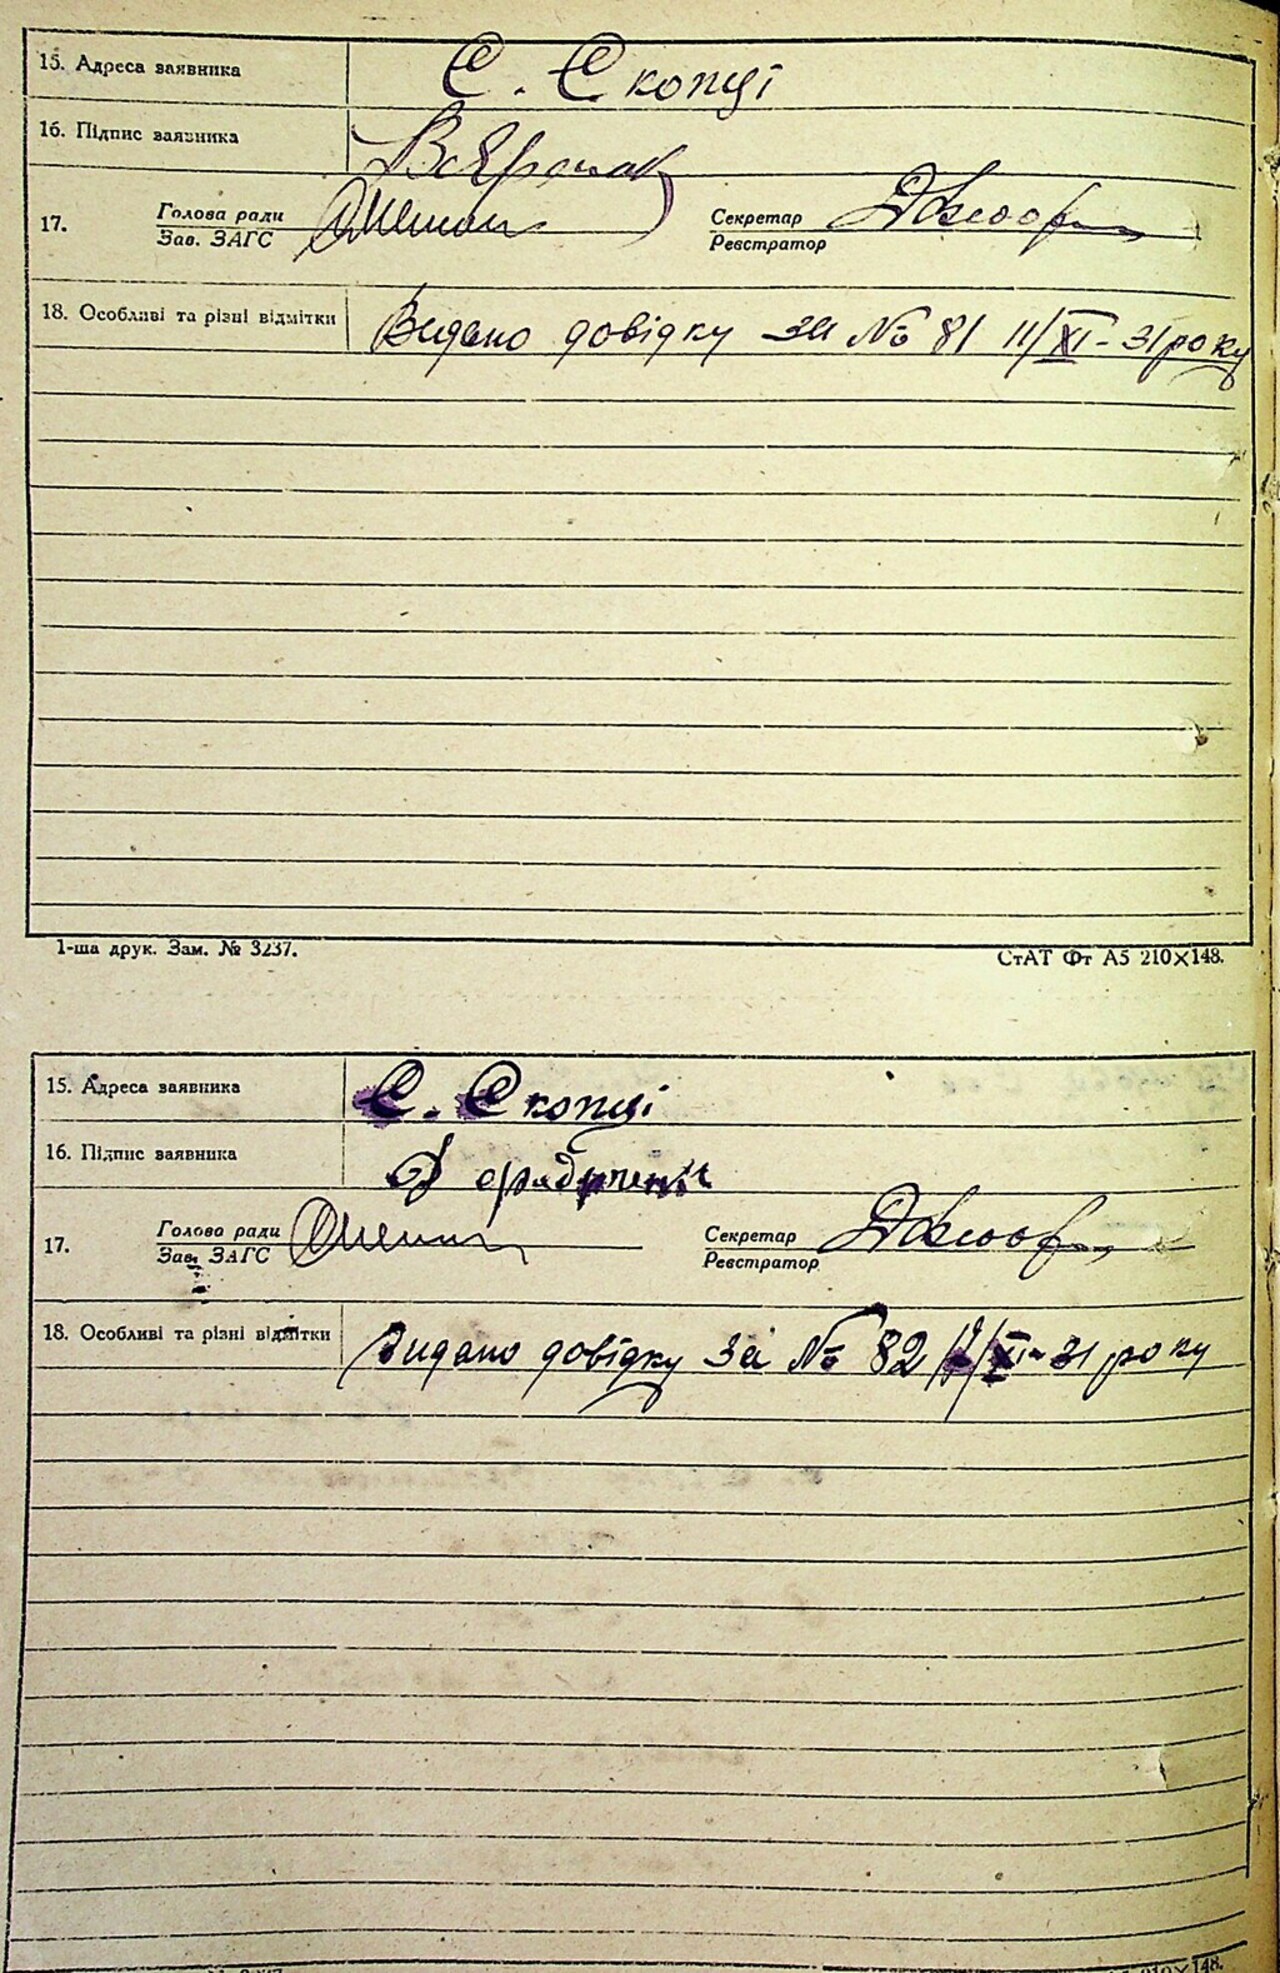 15. Адреса заявника С. Скопці
16. Підпис заявника
17. Голова ради Секретар
Зав. ЗАГС Реєстратор
18. Особливі та різні відмітки Видано довідку за № 81 11/XI - 31 року
1-ша друк. Зам. № 3237. СтАТ Фт А5 210×148.
15. Адреса заявника С. Скопці
16. Підпис заявника
17. Голово ради Секретар
Зав. ЗАГС Реєстратор
18. Особливі та різні відмітки Видано довідку за № 82 /XI - 31 року
148.